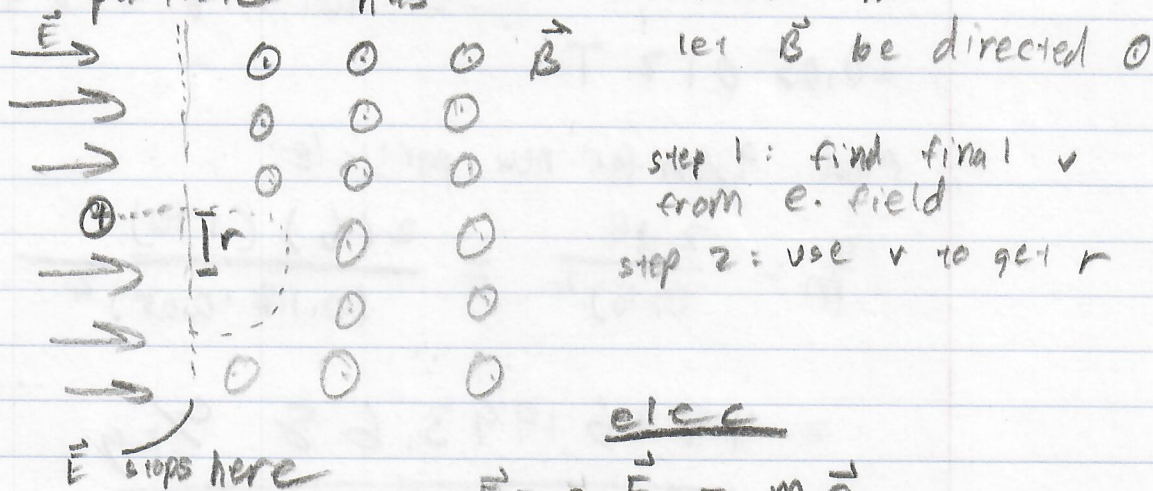 E⃗
B⃗
let B⃗ be directed ⊙
step 1: find final v
from e. field
step 2: use v to get r
⊕
r
E⃗ stops here
elec